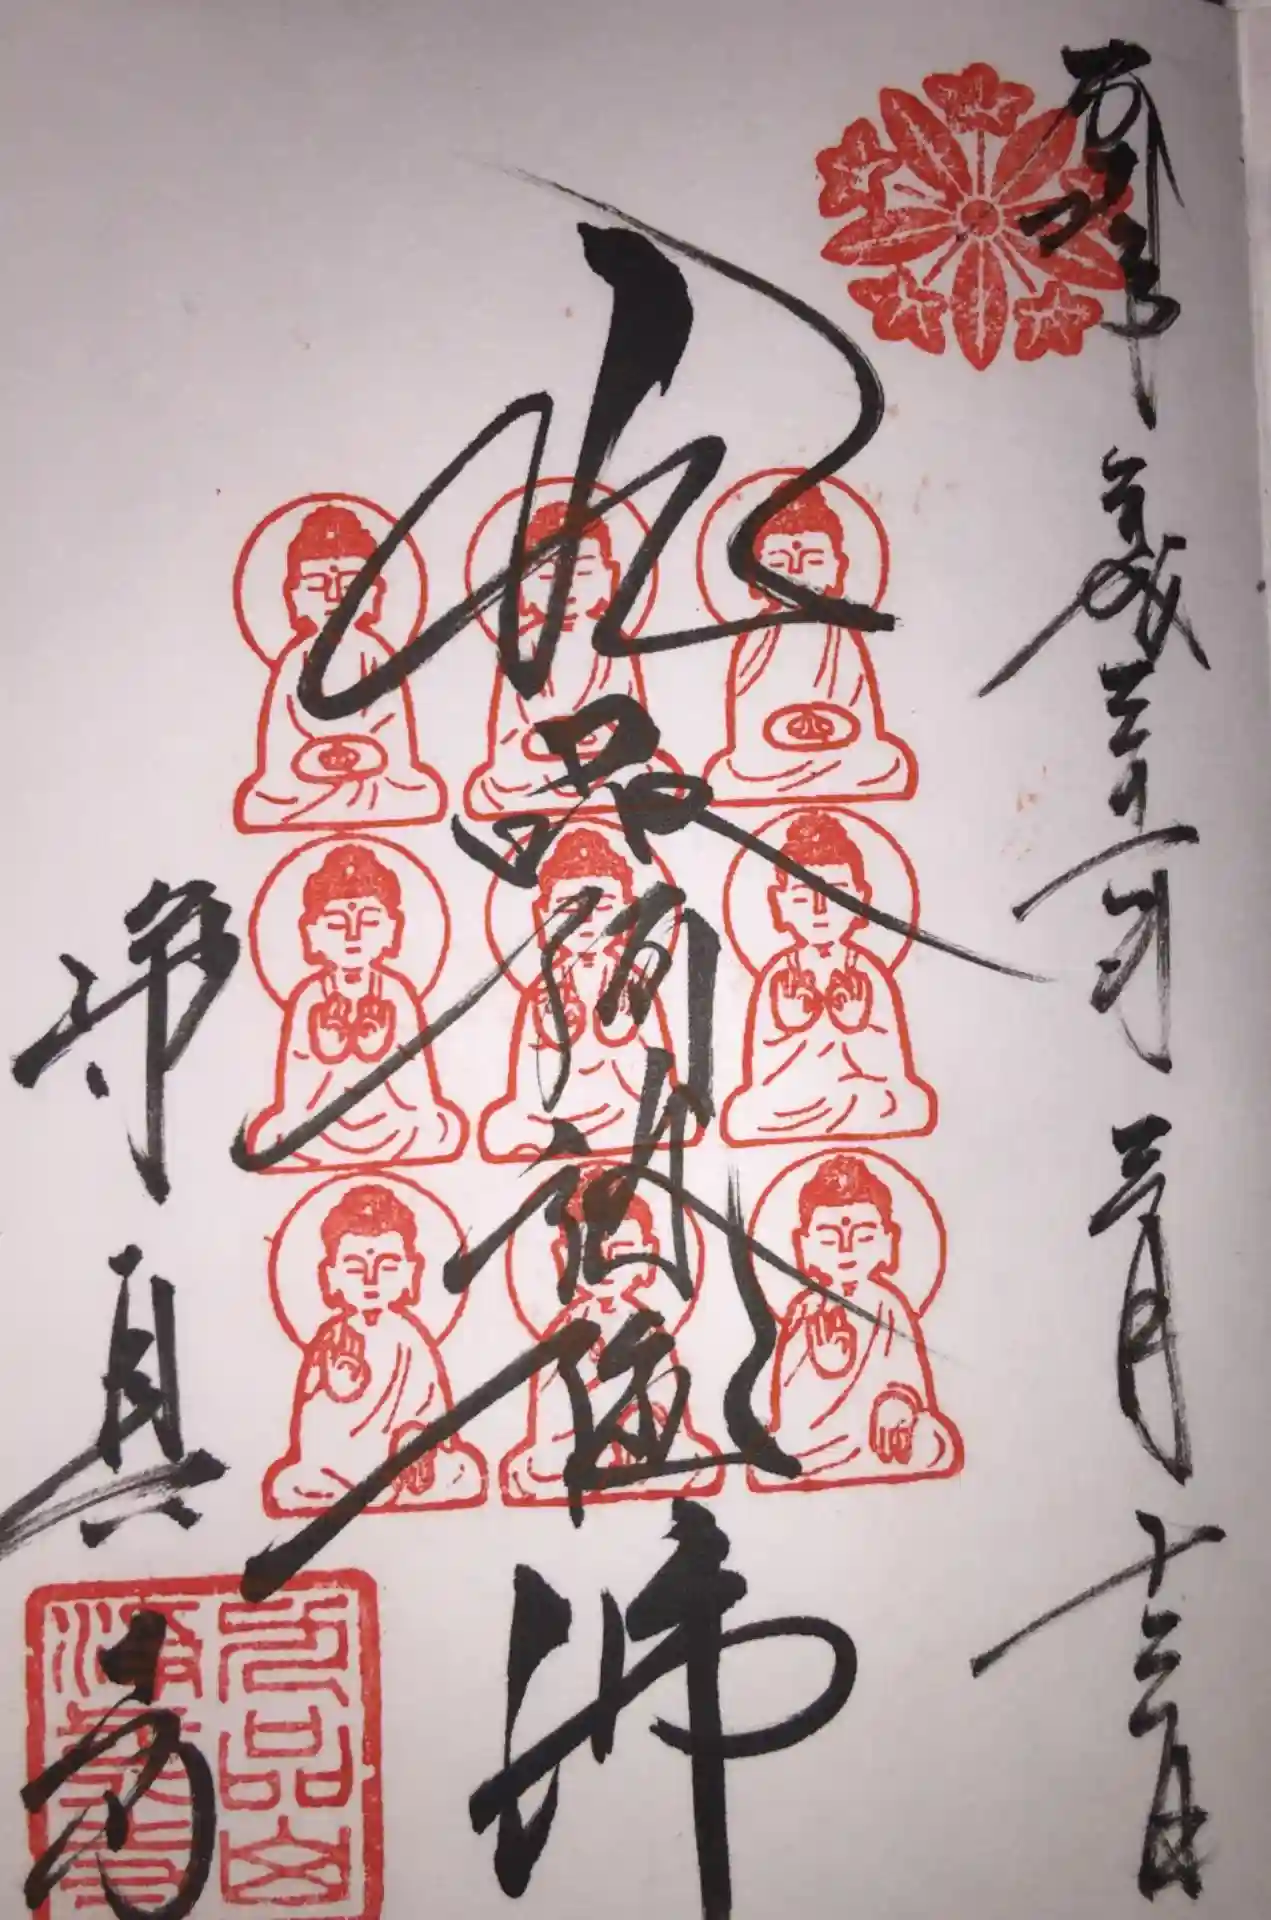 奉拝 平成三十一年 三月 十三日
九品阿弥陀佛
浄真寺
九品山